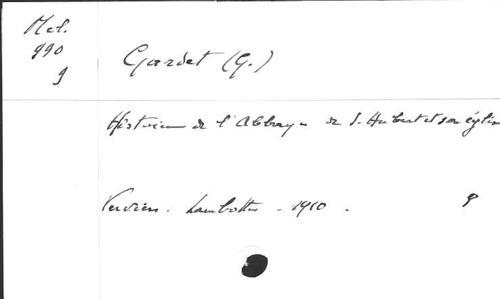 Mel.
990
9
Gardet (G.)
Histoire de l'Abbaye de S. Hubert et son église
Verviers. Lambotte - 1910.